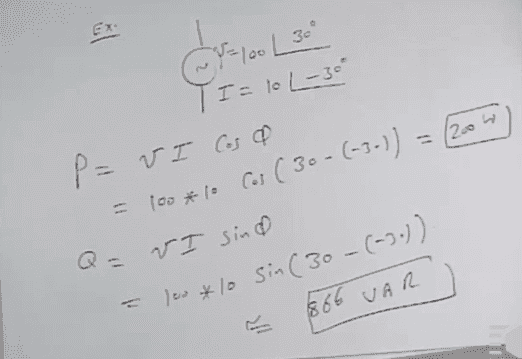 Ex.
V=100 ∠30°
~
I = 10 ∠-30°
P = VI Cos Φ
= 100 * 10 Cos (30 - (-30)) = 200 W
Q = VI Sin Φ
= 100 * 10 Sin (30 - (-30))
≅ 866 VAR